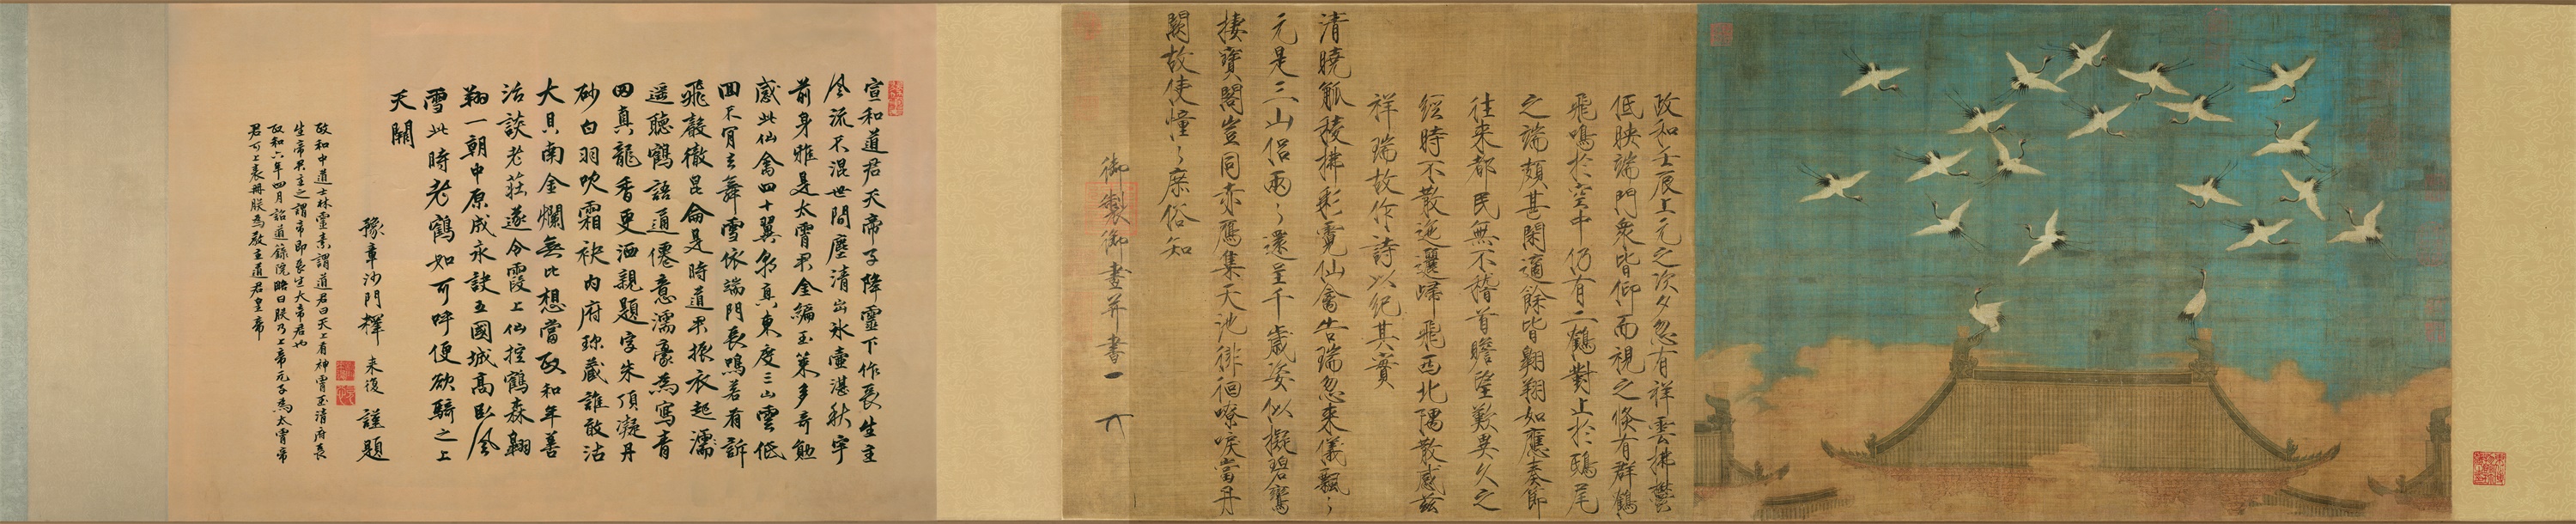 政和壬辰上元之次夕忽有祥雲拂鬱
低映端門衆皆仰而視之倏有群鶴
飛鳴於空中仍有二鶴對止於鴟尾
之端頗甚閑適餘皆翱翔如應奏節
往來都民無不稽首瞻望歎異久之
經時不散迤邐歸飛西北隅散感兹
祥瑞故作詩以紀其實
清曉觚稜拂彩霓仙禽告瑞忽來儀飄〻
元是三山侶兩〻還呈千歲姿似擬碧鸞
棲寶閣豈同赤鴈集天池徘徊嘹唳當丹
闕故使憧〻庶俗知
御製御畫并書
宣和道君天帝子降靈下作長生主
風流不混世間塵清出冰壺湛秋宇
前身雅是太霄君金編玉策多奇勳
感此仙禽四十翼朝真東度三山雲低
回不肎去舞雪依端門長鳴若有訴
飛聲徹昆侖是時道君振衣起濡
遥聽鶴語通僊意濡豪為寫青
田真龍香更洒親題字朱頂凝丹
砂白羽吹霜袂内府珎藏誰敢沽
大貝南金爛無比想當政和年善
活談老莊遂令霞上仙控鶴森翱
翔一朝中原成永訣五國城高卧風
雪此時老鶴如可呼便欲騎之上
天關
豫章沙門釋 来復 謹題
政和中道士林靈素謂道君曰天上有神霄玉清府長
生帝君主之謂帝即長生大帝君也
政和六年四月詔道錄院略曰朕乃上帝元子為太霄帝
君可上表冊朕為教主道君皇帝